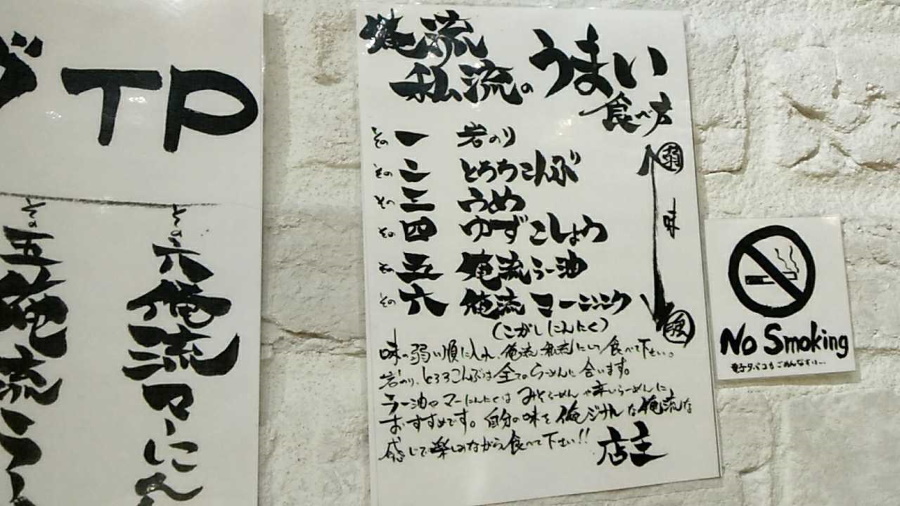 TP
その五俺流ラー
その六俺流マーにん
俺流
私流のうまい
食べ方
その一 岩のり
その二 とろろこんぶ
その三 うめ
その四 ゆずこしょう
その五 俺流ラー油
その六 俺流マーニンニク
(こがしにんにく)
弱
味
強
味の弱い順に入れ、俺流、私流にして食べて下さい。
岩のり、とろろこんぶは全てのらーめんに合います。
ラー油やマーにんにくはみそらーめんや辛しらーめんに
おすすめです。自分の味を俺ジナルな俺流な
感じで楽しみながら食べて下さい!!
店主
No Smoking
電子タバコもごめんなさい…